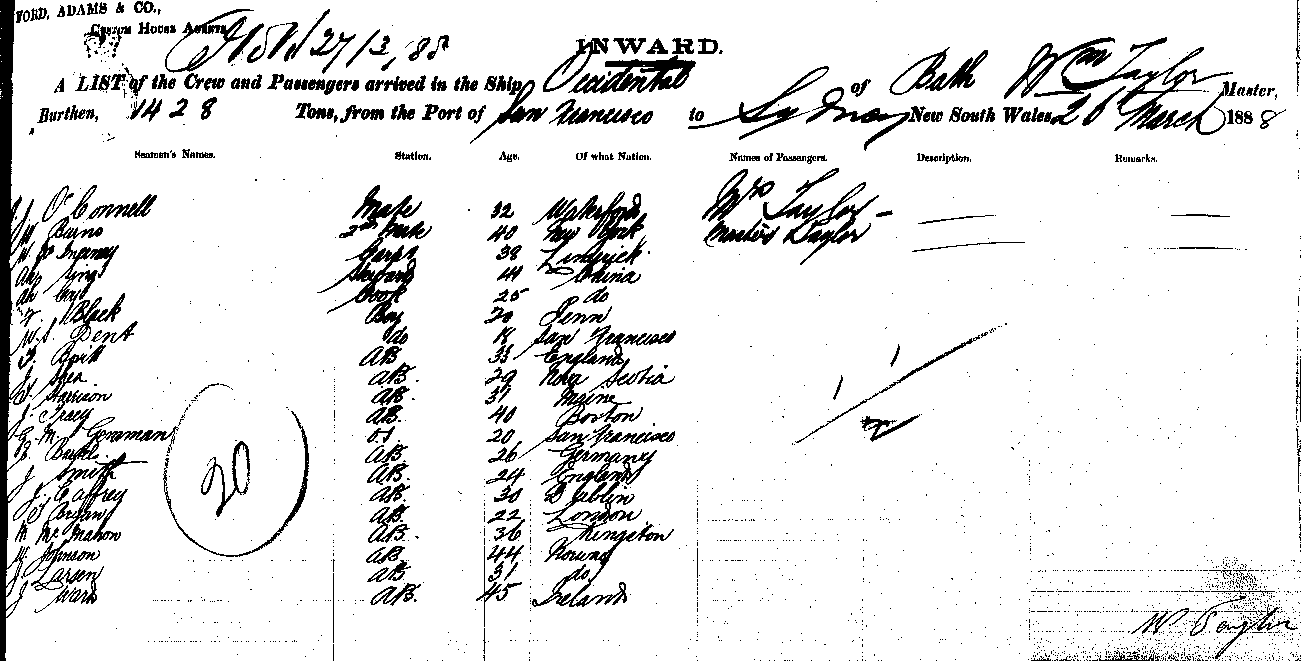 FORD, ADAMS & CO.,
Custom House Agents
27/3/88
INWARD.
A LIST of the Crew and Passengers arrived in the Ship Occidental of Bath Wm Taylor Master,
Burthen, 1428 Tons, from the Port of San Francisco to Sydney New South Wales 26 March 1888
Seamen's Names. Station. Age. Of what Nation. Names of Passengers. Description. Remarks.
J. O'Connell Mate 32 Waterford Mrs Taylor
W Burns 2nd Mate 40 New York Master Taylor
Carpr 38 Limerick
Ah Sing Steward 44 China
Ah Cook 25 do
F. Black Boy 20 Penn
W. S. Dent do 18 San Francisco
AB 33 England
J Shea AB. 29 Nova Scotia
Harrison AB. 37 Maine
J. Tracy AB. 40 Boston
M Gorman OS 20 San Francisco
AB. 26 Germany
J Smith AB. 24 England
J. Caffrey AB. 30 Dublin
Bryan AB. 22 London
M McMahon AB. 36 Kingston
W. Johnson AB. 44 Norway
J Larsen AB 31 do
J Ward AB. 45 Ireland
20
W Taylor